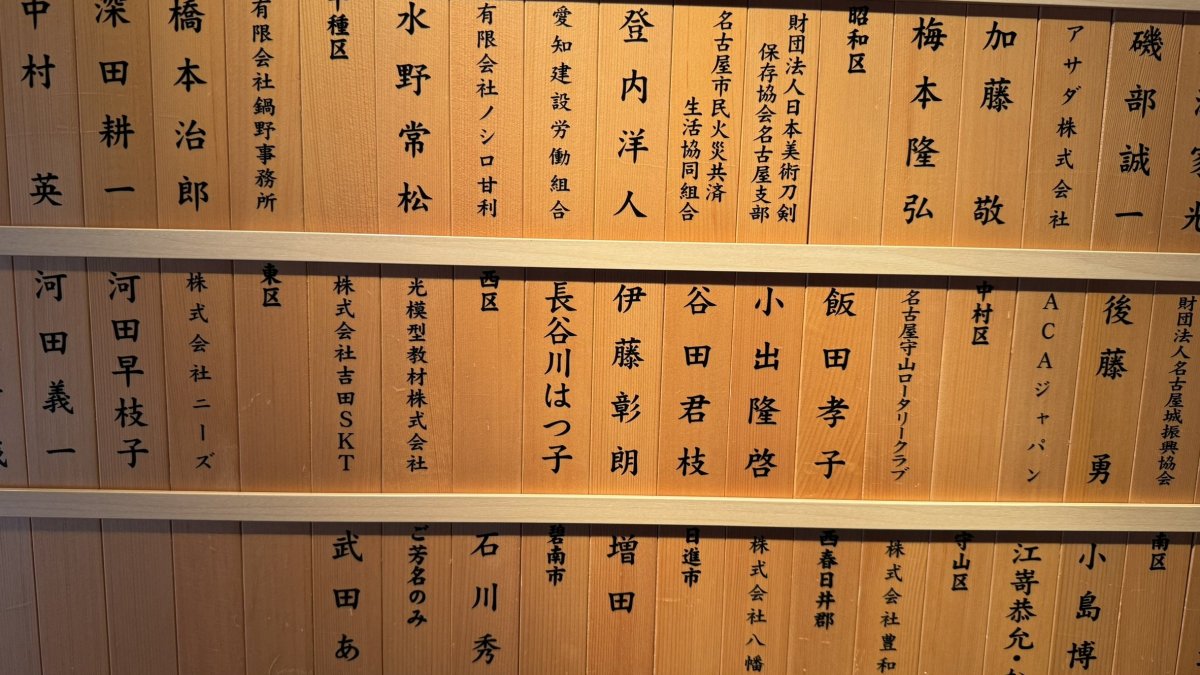 磯部誠一
アサダ株式会社
加藤敬
梅本隆弘
昭和区
財団法人日本美術刀剣
保存協会名古屋支部
名古屋市民火災共済
生活協同組合
登内洋人
愛知建設労働組合
有限会社ノシロ甘利
水野常松
千種区
有限会社鍋野事務所
橋本治郎
深田耕一
中村英
財団法人名古屋城振興協会
後藤勇
ACAジャパン
中村区
名古屋守山ロータリークラブ
飯田孝子
小出隆啓
谷田君枝
伊藤彰朗
長谷川はつ子
西区
光模型教材株式会社
株式会社吉田SKT
東区
株式会社ニーズ
河田早枝子
河田義一
南区
小島博
江嵜恭允・
守山区
株式会社豊和
西春日井郡
株式会社八幡
日進市
増田
碧南市
石川秀
ご芳名のみ
武田あ